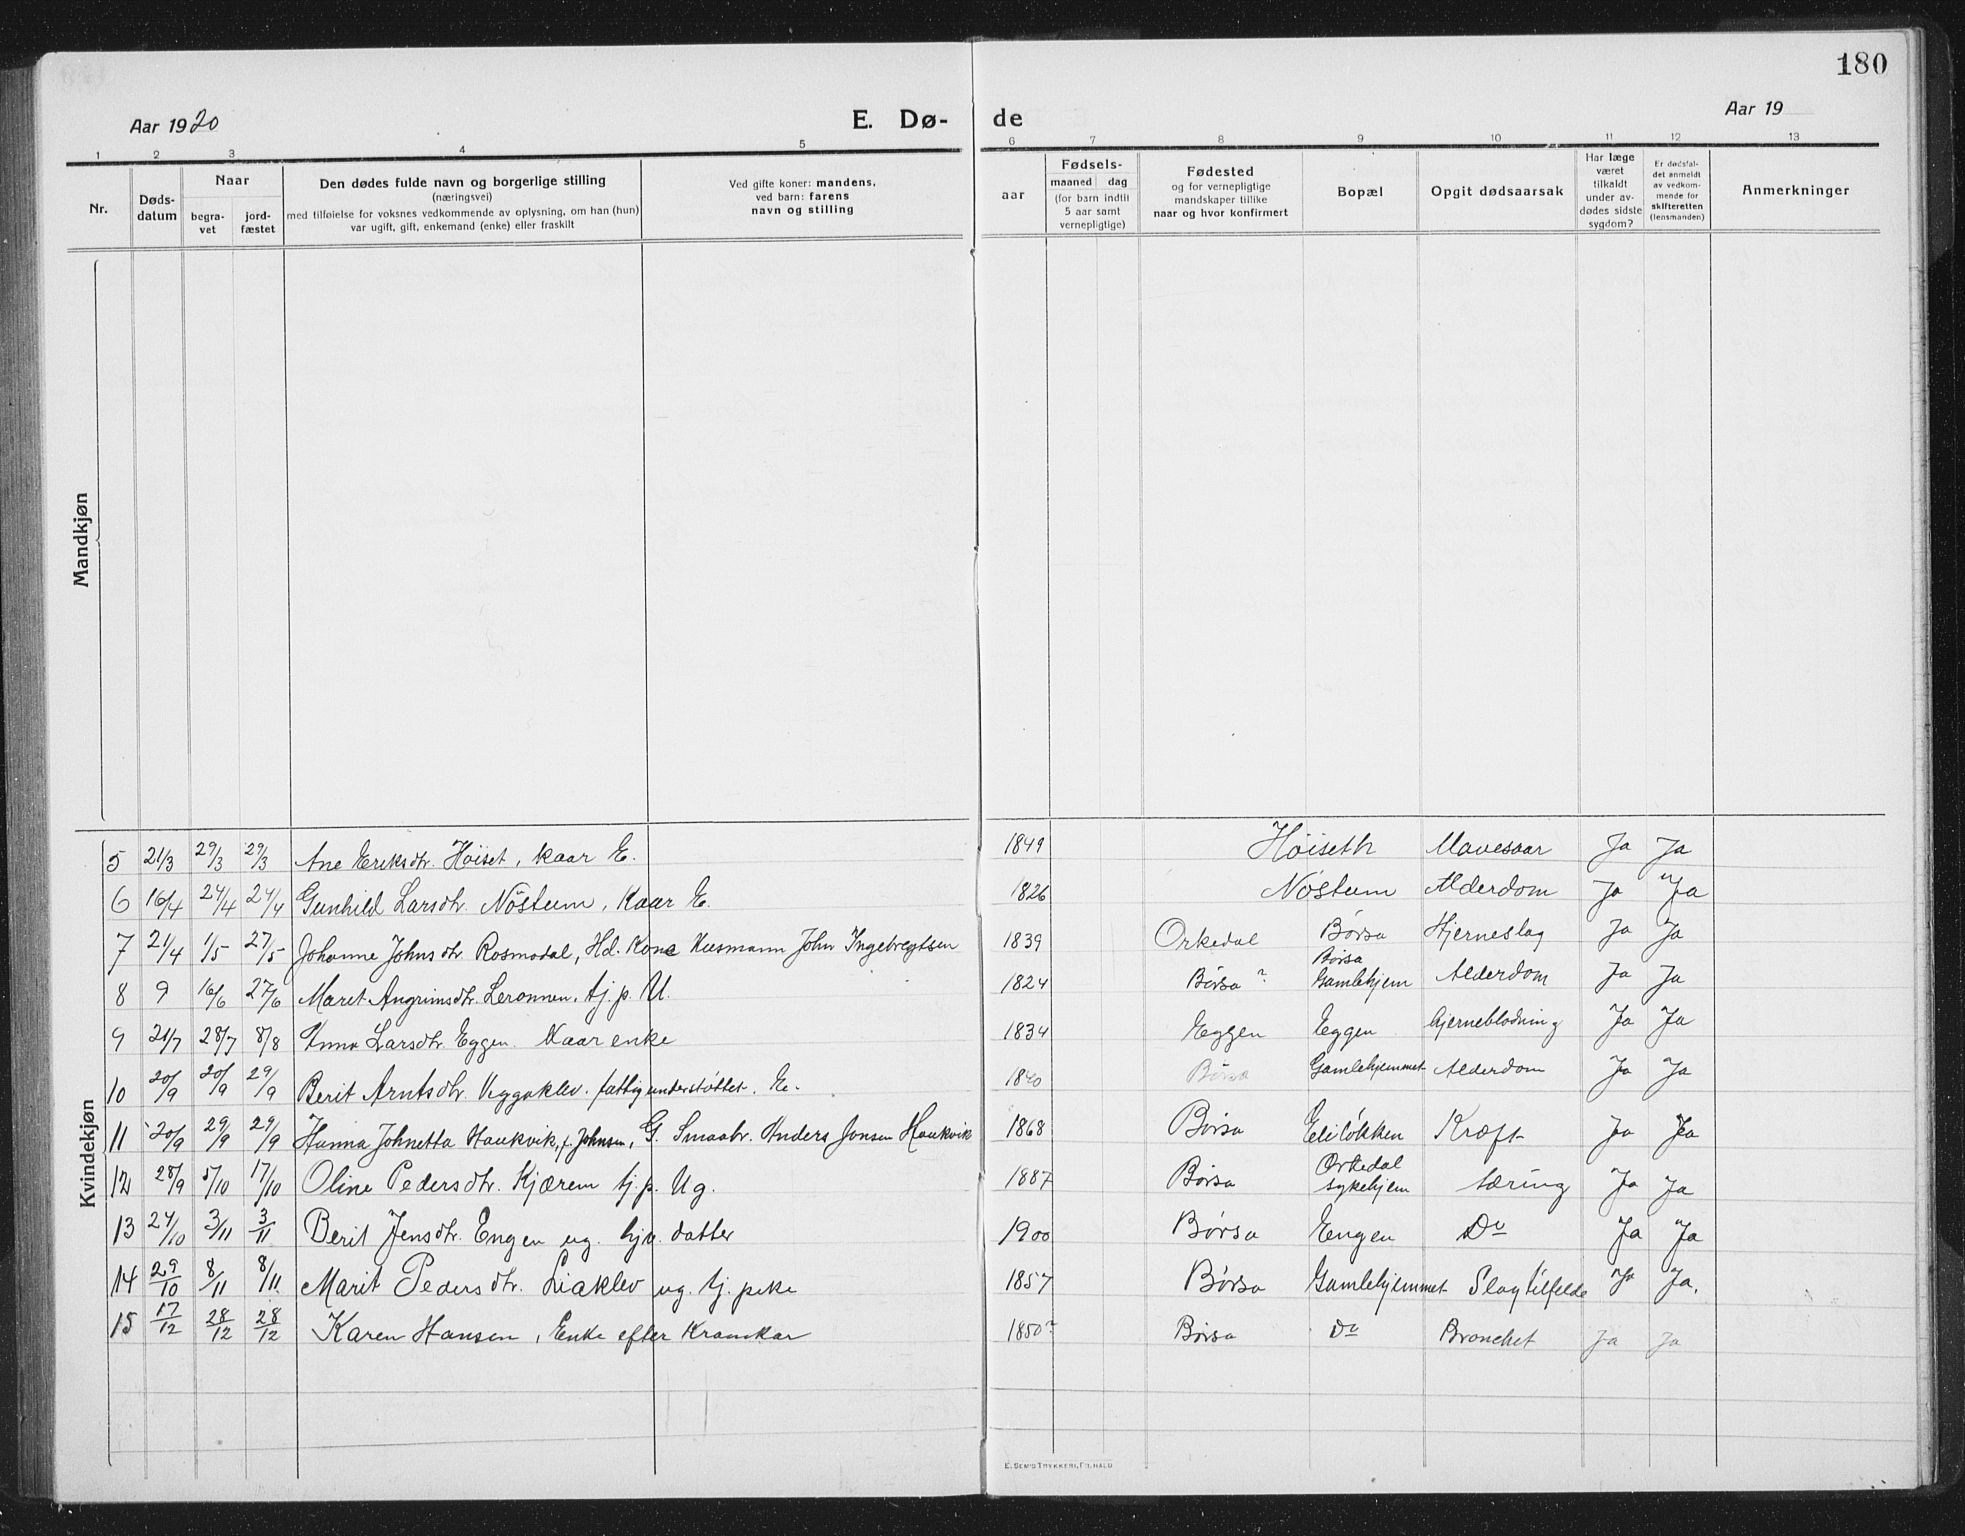 180
Aar 1920 E. Dø- de Aar 19
1 2 3 4 5 6 7 8 9 10 11 12 13
Nr.
Døds-
datum
Naar
begra-
vet
jord-
fæstet
Den dødes fulde navn og borgerlige stilling
(næringsvei)
med tilføielse for voksnes vedkommende av oplysning, om han (hun)
var ugift, gift, enkemand (enke) eller fraskilt
Ved gifte koner: mandens,
ved barn: farens
navn og stilling
aar
Fødsels-
maaned dag
(for barn indtil
5 aar samt
vernepligtige)
Fødested
og for vernepligtige
mandskaper tillike
naar og hvor konfirmert
Bopæl
Opgit dødsaarsak
Har læge
været
tilkaldt
under av-
dødes sidste
sygdom?
Er dødsfal-
det anmeldt
av vedkom-
mende for
skifteretten
(lensmanden)
Anmerkninger
Mandkjøn
Kvindekjøn
5 21/3 29/3 29/3 Ane Eriksdtr. Høiset, kaar E. 1849 Høiseth Mavesaar Ja Ja
6 16/4 24/4 24/4 Gunhild Larsdtr. Nöstum, Kaar E. 1826 Nöstum Alderdom Ja Ja
7 21/4 1/5 27/5 Johanne Johnsdtr. Rosmodal, Hd. Kone Husmann John Ingebregtsen 1839 Orkedal Børsa Hjerneslag Ja Ja
8 9 16/6 27/6 Maret Angrimsdtr. Leronnen, tj. p. U. 1824 Børsa? Børsa Gamlehjem Alderdom Ja Ja
9 21/7 28/7 8/8 Anna Larsdtr. Eggen. Kaarenke 1834 Eggen Eggen hjerneblødning Ja Ja
10 20/9 20/9 29/9 Berit Arntsdtr. Viggaklev. fattigunderstøttet. E. 1840 Børsa Gamlehjemmet Alderdom Ja Ja
11 20/9 29/9 29/9 Hanna Johnetta Haukvik, f. Johnsen, G. Smaabr. Anders Jonsen Haukvik 1868 Børsa Eliløkken Kræft Ja Ja
12 28/9 5/10 17/10 Oline Pedersdtr. Kjærem tj. p. Ug. 1887 Børsa Orkedal sykehjem tæring Ja Ja
13 24/10 3/11 3/11 Berit Jensdtr. Engen ug. hjv. datter 1900 Børsa Engen Do Ja Ja
14 29/10 8/11 8/11 Marit Pedersdtr. Liaklev ug. tj. pike 1857 Børsa Gamlehjemmet Slagtilfelde Ja Ja.
15 17/12 28/12 28/12 Karen Hansen, Enke efter Kramkar 1850? Børsa Do Bronchit Ja Ja
E. SEM'S TRYKKERI, FR.HALD